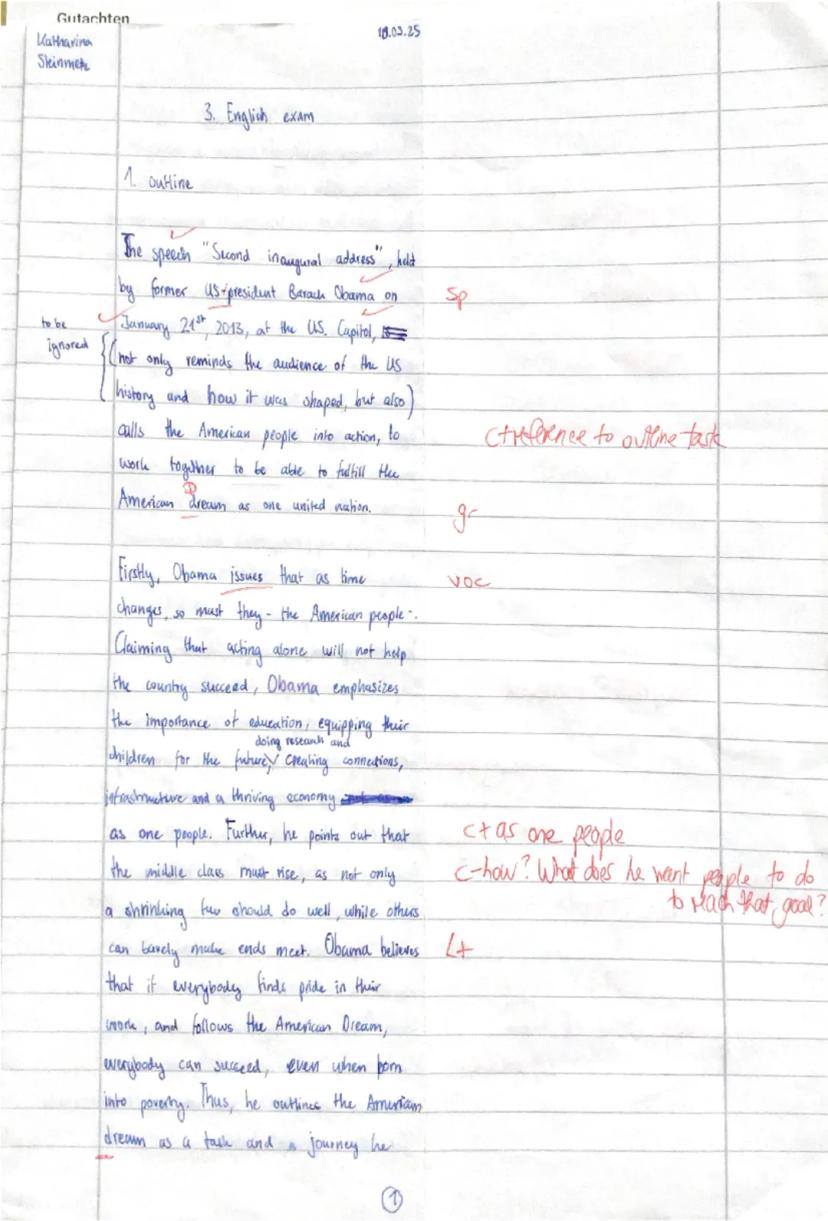 Gutachten
10.03.25
Katharina
Steinmetz
3. English exam
1. outline
The speech "Second inaugural address", held
by former US-president Barack Obama on
sp
to be
ignored
January 21st, 2013, at the US. Capitol,
(not only reminds the audience of the US
history and how it was shaped, but also)
calls the American people into action, to
c+reference to outline task
work together to be able to fulfill the
American dream as one united nation.
D
gr
Firstly, Obama issues that as time
voc
changes, so must they - the American people -.
Claiming that acting alone will not help
the country succeed, Obama emphasizes
the importance of education, equipping their
doing research and
children for the future, creating connections,
infrastructure and a thriving economy
as one people. Further, he points out that
c+ as one people
the middle class must rise, as not only
c-how? What does he want people to do
to reach that goal?
a shrinking few should do well, while others
can barely make ends meet. Obama believes
L+
that if everybody finds pride in their
work, and follows the American Dream,
everybody can succeed, even when born
into poverty. Thus, he outlines the American
dream as a task and a journey he
1